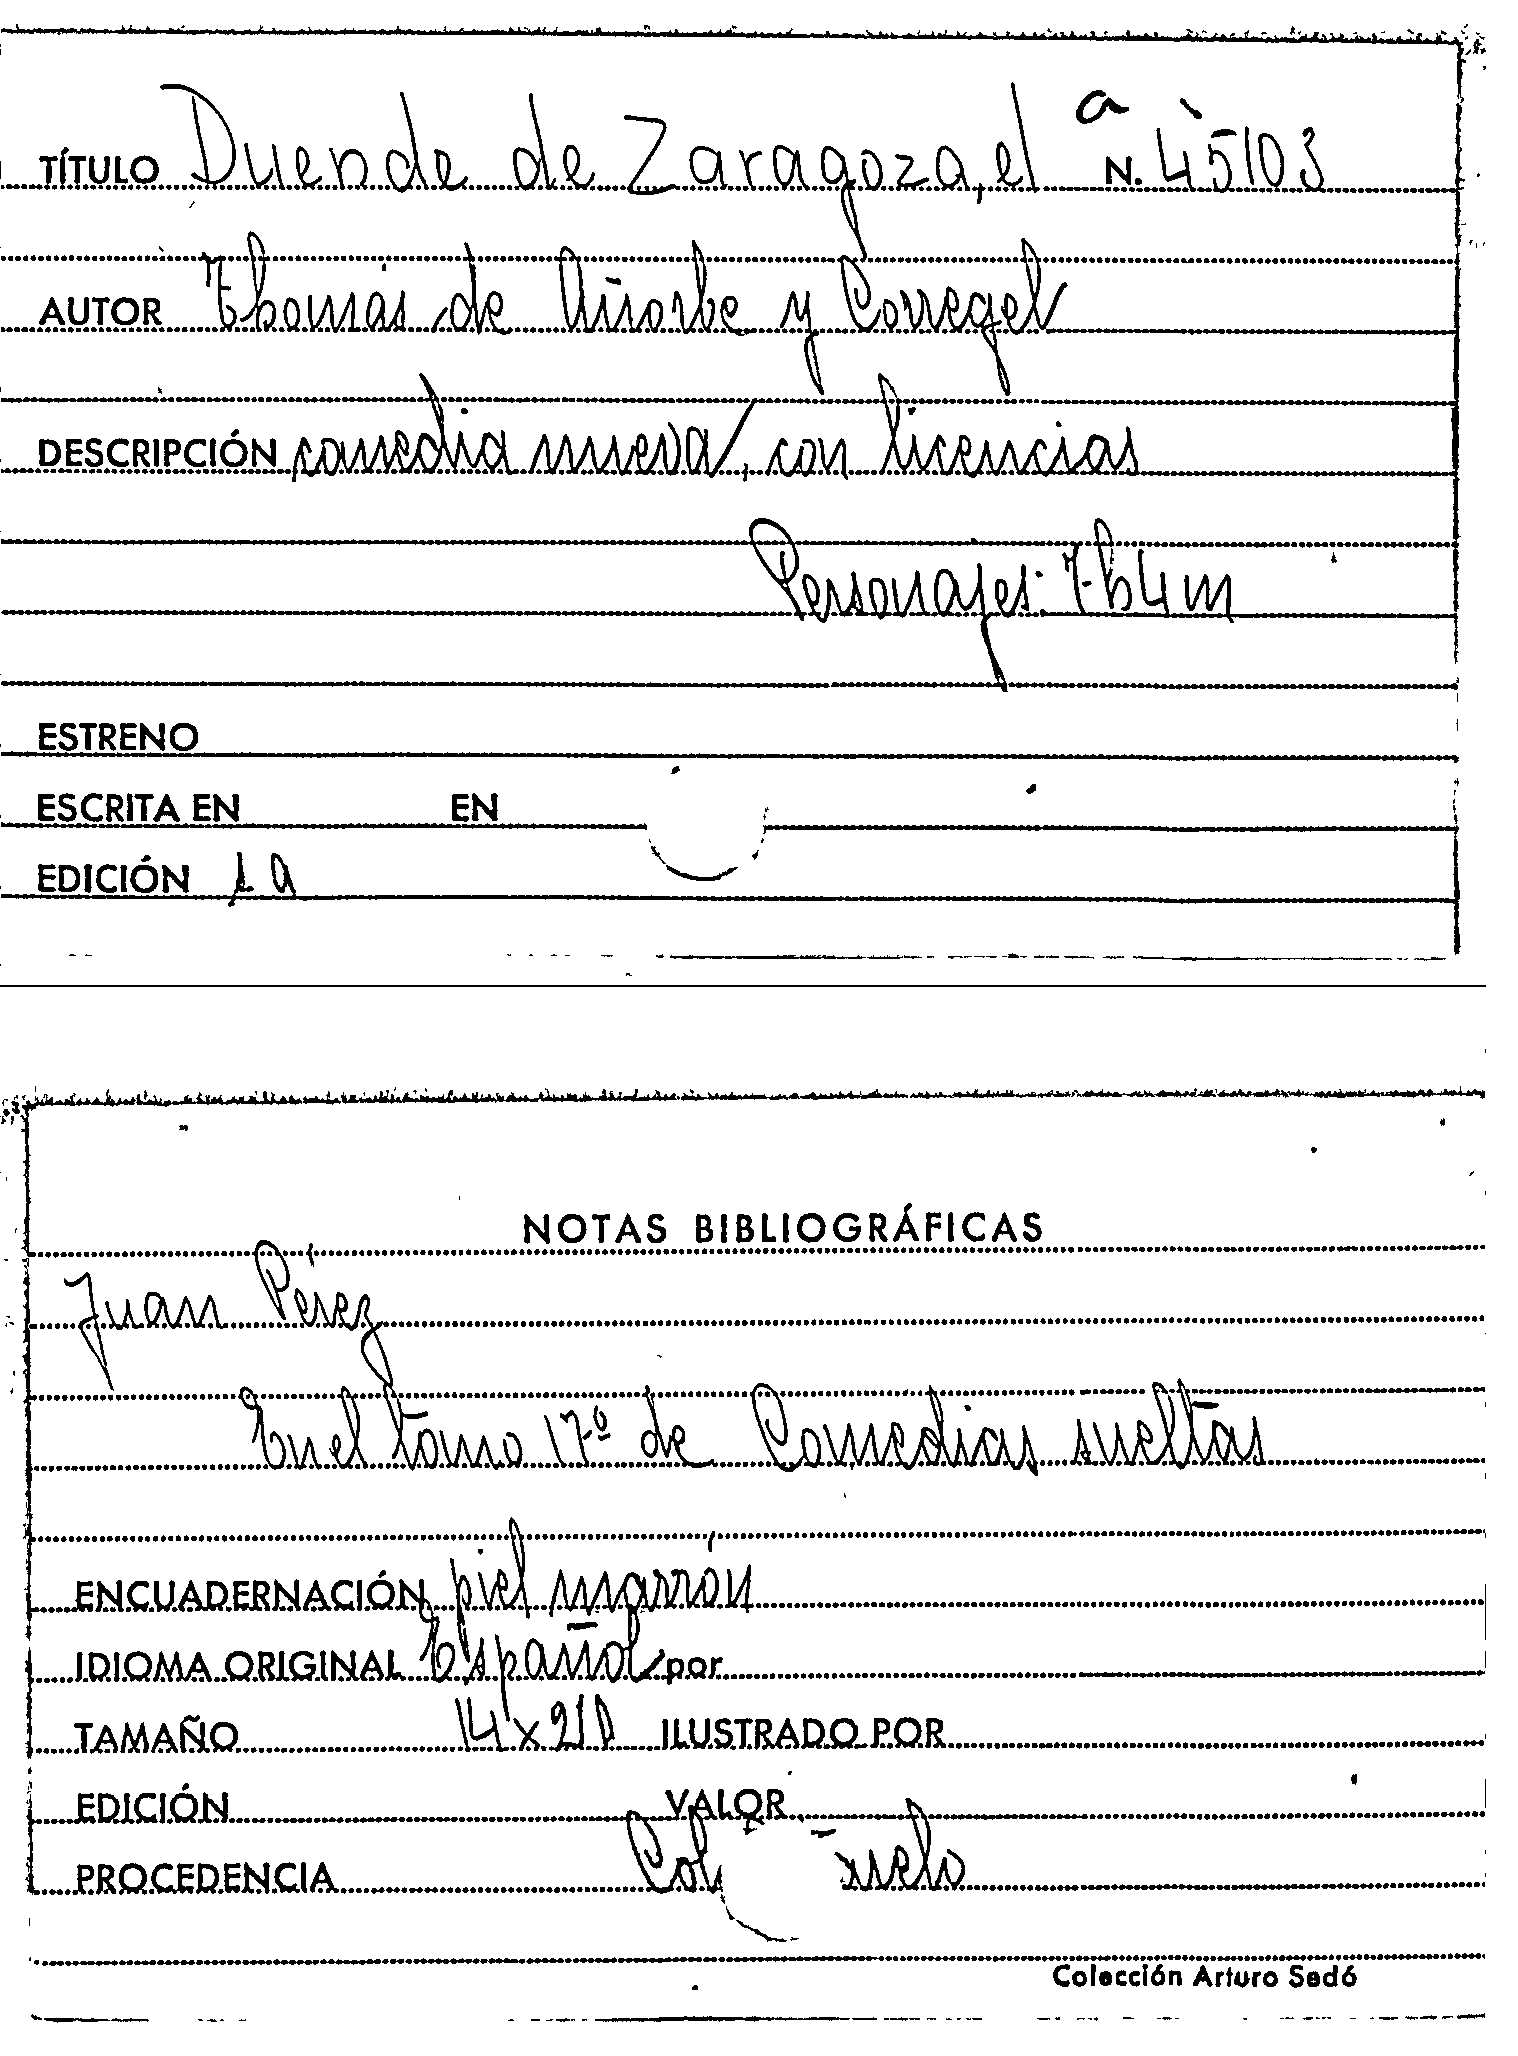 a
TÍTULO Duende de Zaragoza, el N. 45103
AUTOR Thomás de Añorbe y Corregel
DESCRIPCIÓN comedia nueva, con licencias
Personajes: 7h4m
ESTRENO
ESCRITA EN EN
EDICIÓN 1a
NOTAS BIBLIOGRÁFICAS
Juan Pérez
En el tomo 17º de Comedias sueltas
ENCUADERNACIÓN piel marrón
IDIOMA ORIGINAL Español por
TAMAÑO 14 x 210 ILUSTRADO POR
EDICIÓN VALOR
PROCEDENCIA
Colección Arturo Sedó